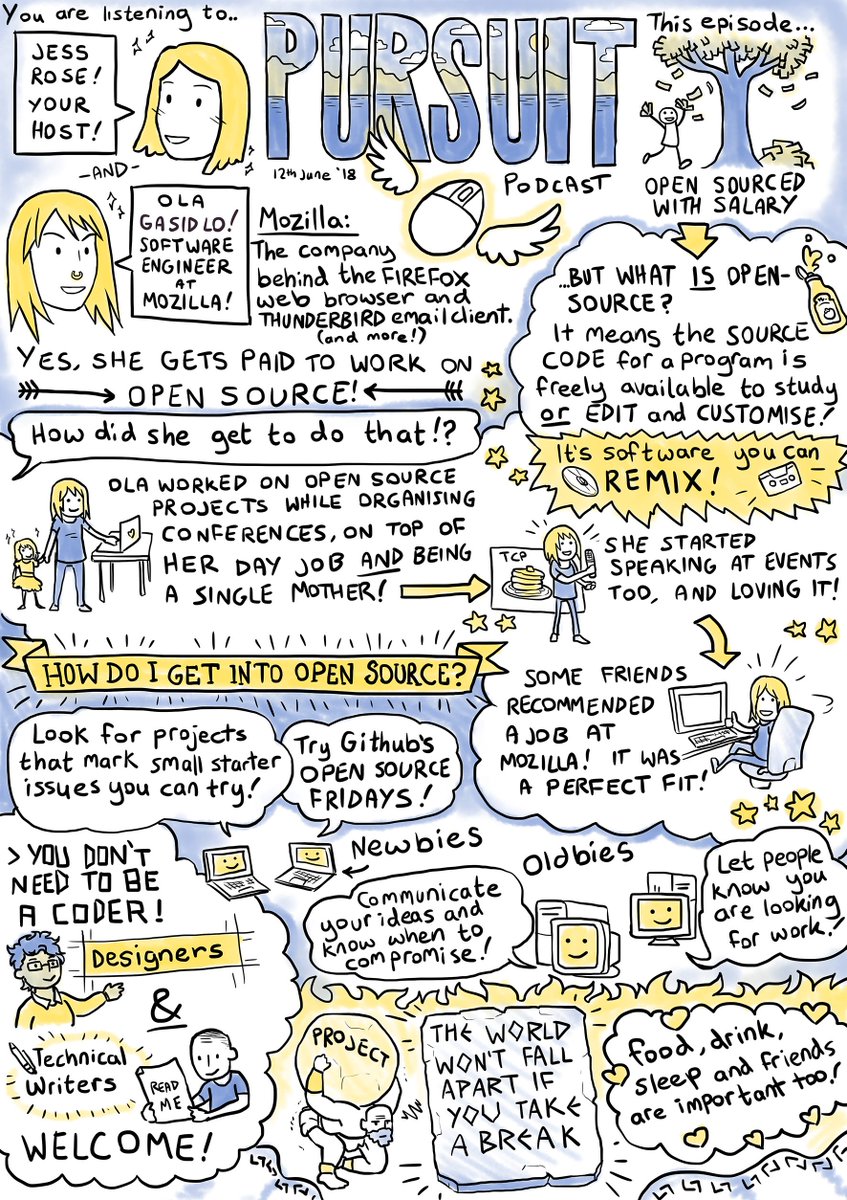 You are listening to..
JESS
ROSE!
YOUR
HOST!
-AND-
PURSUIT
12th June '18
PODCAST
This episode...
OPEN SOURCED
WITH SALARY
OLA
GASIDLO!
SOFTWARE
ENGINEER
AT
MOZILLA!
Mozilla:
The company
behind the FIREFOX
web browser and
THUNDERBIRD email client.
(and more!)
YES, SHE GETS PAID TO WORK ON
OPEN SOURCE!
...BUT WHAT IS OPEN-
SOURCE?
It means the SOURCE
CODE for a program is
freely available to study
or EDIT and CUSTOMISE!
It's software you can
REMIX!
How did she get to do that!?
OLA WORKED ON OPEN SOURCE
PROJECTS WHILE ORGANISING
CONFERENCES, ON TOP OF
HER DAY JOB AND BEING
A SINGLE MOTHER!
TCP
SHE STARTED
SPEAKING AT EVENTS
TOO, AND LOVING IT!
SOME FRIENDS
RECOMMENDED
A JOB AT
MOZILLA! IT WAS
A PERFECT FIT!
HOW DO I GET INTO OPEN SOURCE?
Look for projects
that mark small starter
issues you can try!
Try Github's
OPEN SOURCE
FRIDAYS!
Newbies
Oldbies
Communicate
your ideas and
know when to
compromise!
Let people
know you
are looking
for work!
> YOU DON'T
NEED TO BE
A CODER!
Designers
&
Technical
Writers
READ
ME
WELCOME!
PROJECT
THE WORLD
WON'T FALL
APART IF
YOU TAKE
A BREAK
food, drink,
sleep and friends
are important too!